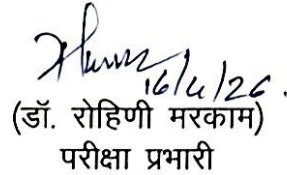 16/4/26.
(डॉ. रोहिणी मरकाम)
परीक्षा प्रभारी